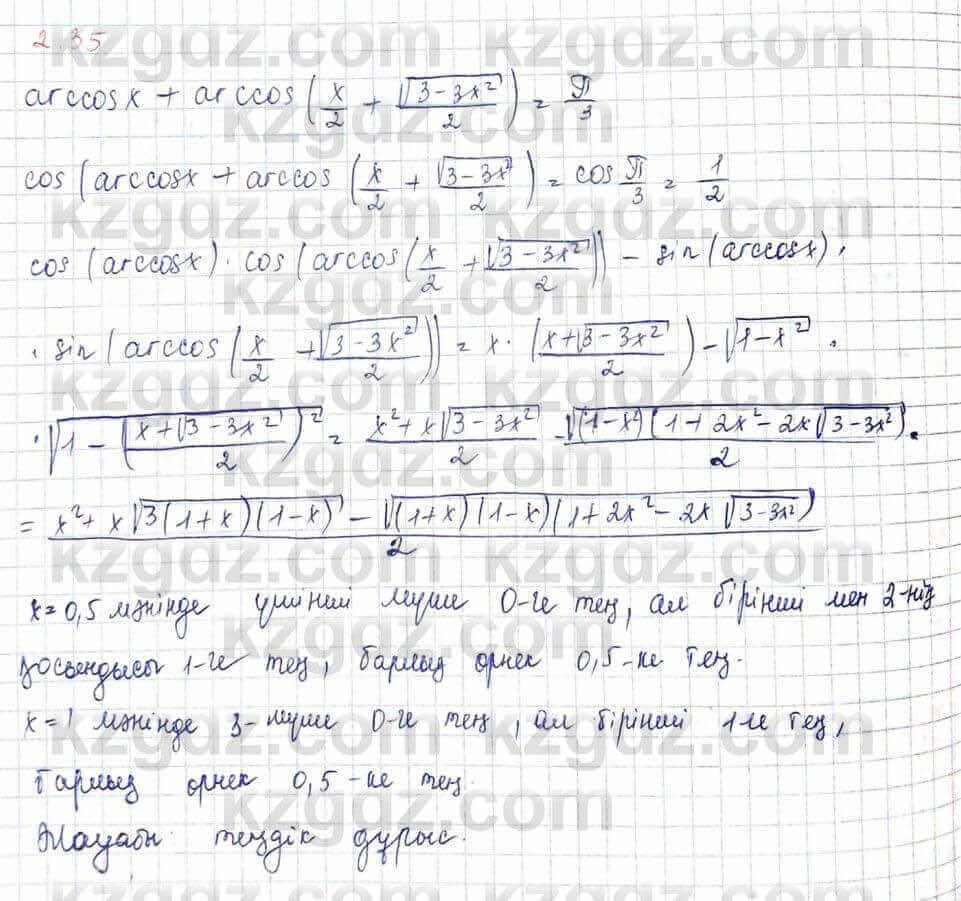 2.35
arccosx + arccos(x/2 + √(3-3x²)/2) = π/3
cos(arccosx + arccos(x/2 + √(3-3x²)/2) = cos π/3 = 1/2
cos(arccosx) · cos(arccos(x/2 + √(3-3x²)/2)) - sin(arccosx) ·
· sin(arccos(x/2 + √(3-3x²)/2)) = x · (x+√(3-3x²)/2) - √(1-x²) ·
· √(1 - (x+√(3-3x²)/2)²) = x²+x√(3-3x²)/2 - √((1-x²)(1+2x²-2x√(3-3x²))/2.
= x²+x√(3(1+x)(1-x)) - √((1+x)(1-x)(1+2x²-2x√(3-3x²))/2
x=0,5 мәнінде үшінші мүше 0-ге тең, ал бірінші мен 2-нің
қосындысы 1-ге тең, барлық өрнек 0,5-ке тең.
x=1 мәнінде 3-мүше 0-ге тең, ал бірінші 1-ге тең,
барлық өрнек 0,5-ке тең.
Жауабы: теңдік дұрыс.
kzgdz.com